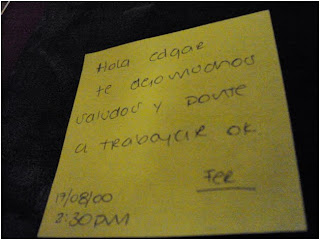 Hola edgar
te dejo muchos
saludos y ponte
a trabajar ok
Fer
19/08/00
2:30PM